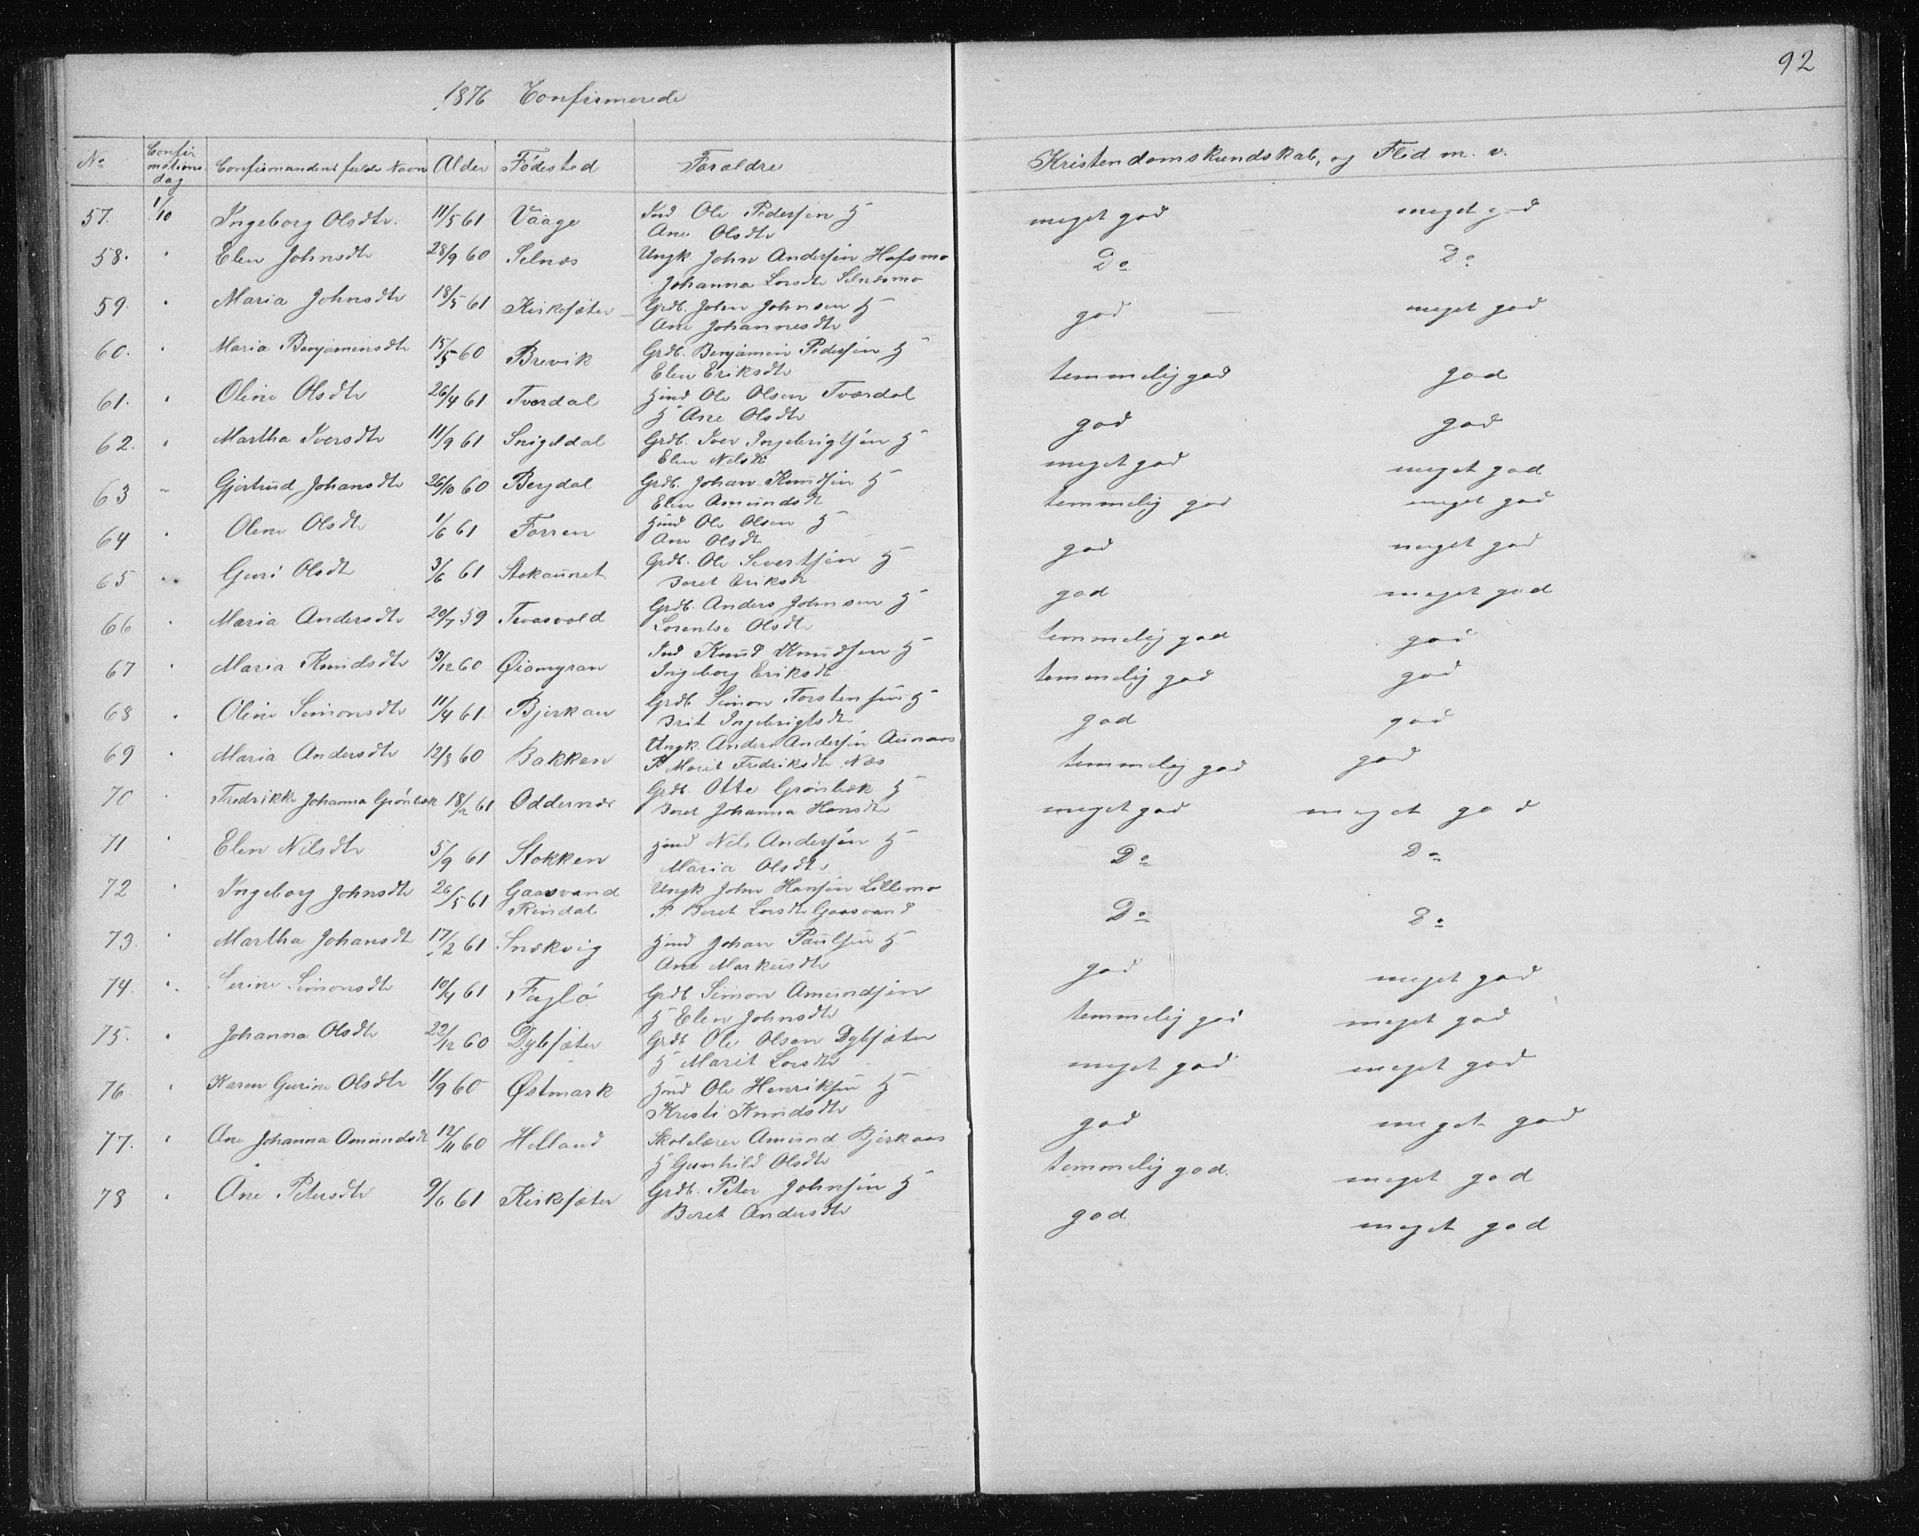 92
1876 Confirmerede
No Confirmations dag Confirmandens fulde Navn Alder Fødested Forældre Kristendomskundskab, og Flid m. v.
57. 1/10 Ingeborg Olsdtr. 11/5 61 Vaage Ind Ole Pedersen H meget god meget god
Ane Olsdtr
58. " Elen Johnsdtr 28/9 60 Selnæs Ungk John Andersen Hofsmo Do Do
Johanna Larsdtr Selnæsmo
59. " Maria Johnsdtr 18/5 61 Kirksæter Grdb. John Johnsen H god meget god
Ane Johannesdtr
60. " Maria Benjaminsdtr 15/5 60 Brevik Grdb. Benjamin Pedersen H temmelig god god
Elen Eriksdtr
61. " Oline Olsdtr 26/4 61 Tverdal Hmd Ole Olsen Tværdal god god
H Ane Olsdtr
62. " Martha Iversdtr 11/9 61 Snigeldal Grdb. Iver Ingebrigtsen H meget god meget god
Elen Nilsdtr
63 " Gjertrud Johansdtr 26/10 60 Bergdal Grdb. Johan Knudsen H temmelig god meget god
Elen Amundsdt
64 " Oline Olsdtr 1/6 61 Forren Hmd Ole Olsen H god meget god
Ane Olsdtr
65 " Guri Olsdtr 3/6 61 Stokaunet Grdb. Ole Sivertsen H god meget god
Beret Eriksdtr
66 " Maria Andersdtr 20/7 59 Tevasvold Grdb. Anders Johnsen H temmelig god god
Lorentse Olsdtr
67 " Maria Knudsdtr 13/12 60 Øiamyran Ind Knud Knudsen H temmelig god god
Ingeborg Eriksdtr
68 " Oline Simonsdtr 11/4 61. Bjerkan Grdb Simon Torstensen H god god
Brit Ingebrigtsdtr
69 " Maria Andersdtr 12/8 60 Bakken Ungk. Anders Andersen Aunaas temmelig god god
P Marit Fredriksdtr Næs
70 " Fredrikke Johanna Grønbæk 18/2 61 Oddernæs Grdb. Otte Grønbæk H meget god meget god
Beret Johanna Hansdtr
71 " Elen Nilsdtr 5/9 61 Stokken Hmd Nils Andersen H Do Do
Maria Olsdtr
72 " Ingeborg Johnsdtr 26/5 61 Gaasvand Rindal Ungk John Hansen Lillemo Do Do
P Beret Larsdtr Gaasvand
73. " Martha Johansdtr 17/2 61 Snekvig Hmd Johan Paulsen H god meget god
Ane Markusdtr
74. " Serine Simonsdtr 10/4 61 Fuglø Grdb Simon Amundsen temmelig god meget god
H Elen Johnsdtr
75. " Johanna Olsdtr 22/12 60 Dybsæter Grdb Ole Olsen Dybsæter meget god meget god
H Marit Larsdtr
76. " Karen Gurine Olsdtr 1/9 60 Østmark Hmd Ole Henriksen H god meget god
Kristi Knudsdtr
77. " Ane Johanna Amundsdt 12/11 60 Helland Skolelærer Amund Bjerkaas temmelig god. meget god
H Gunhild Olsdtr
78 " Ane Petersdtr 9/6 61 Kirksæter Grdb. Peter Johnsen H god meget god
Beret Andersdtr